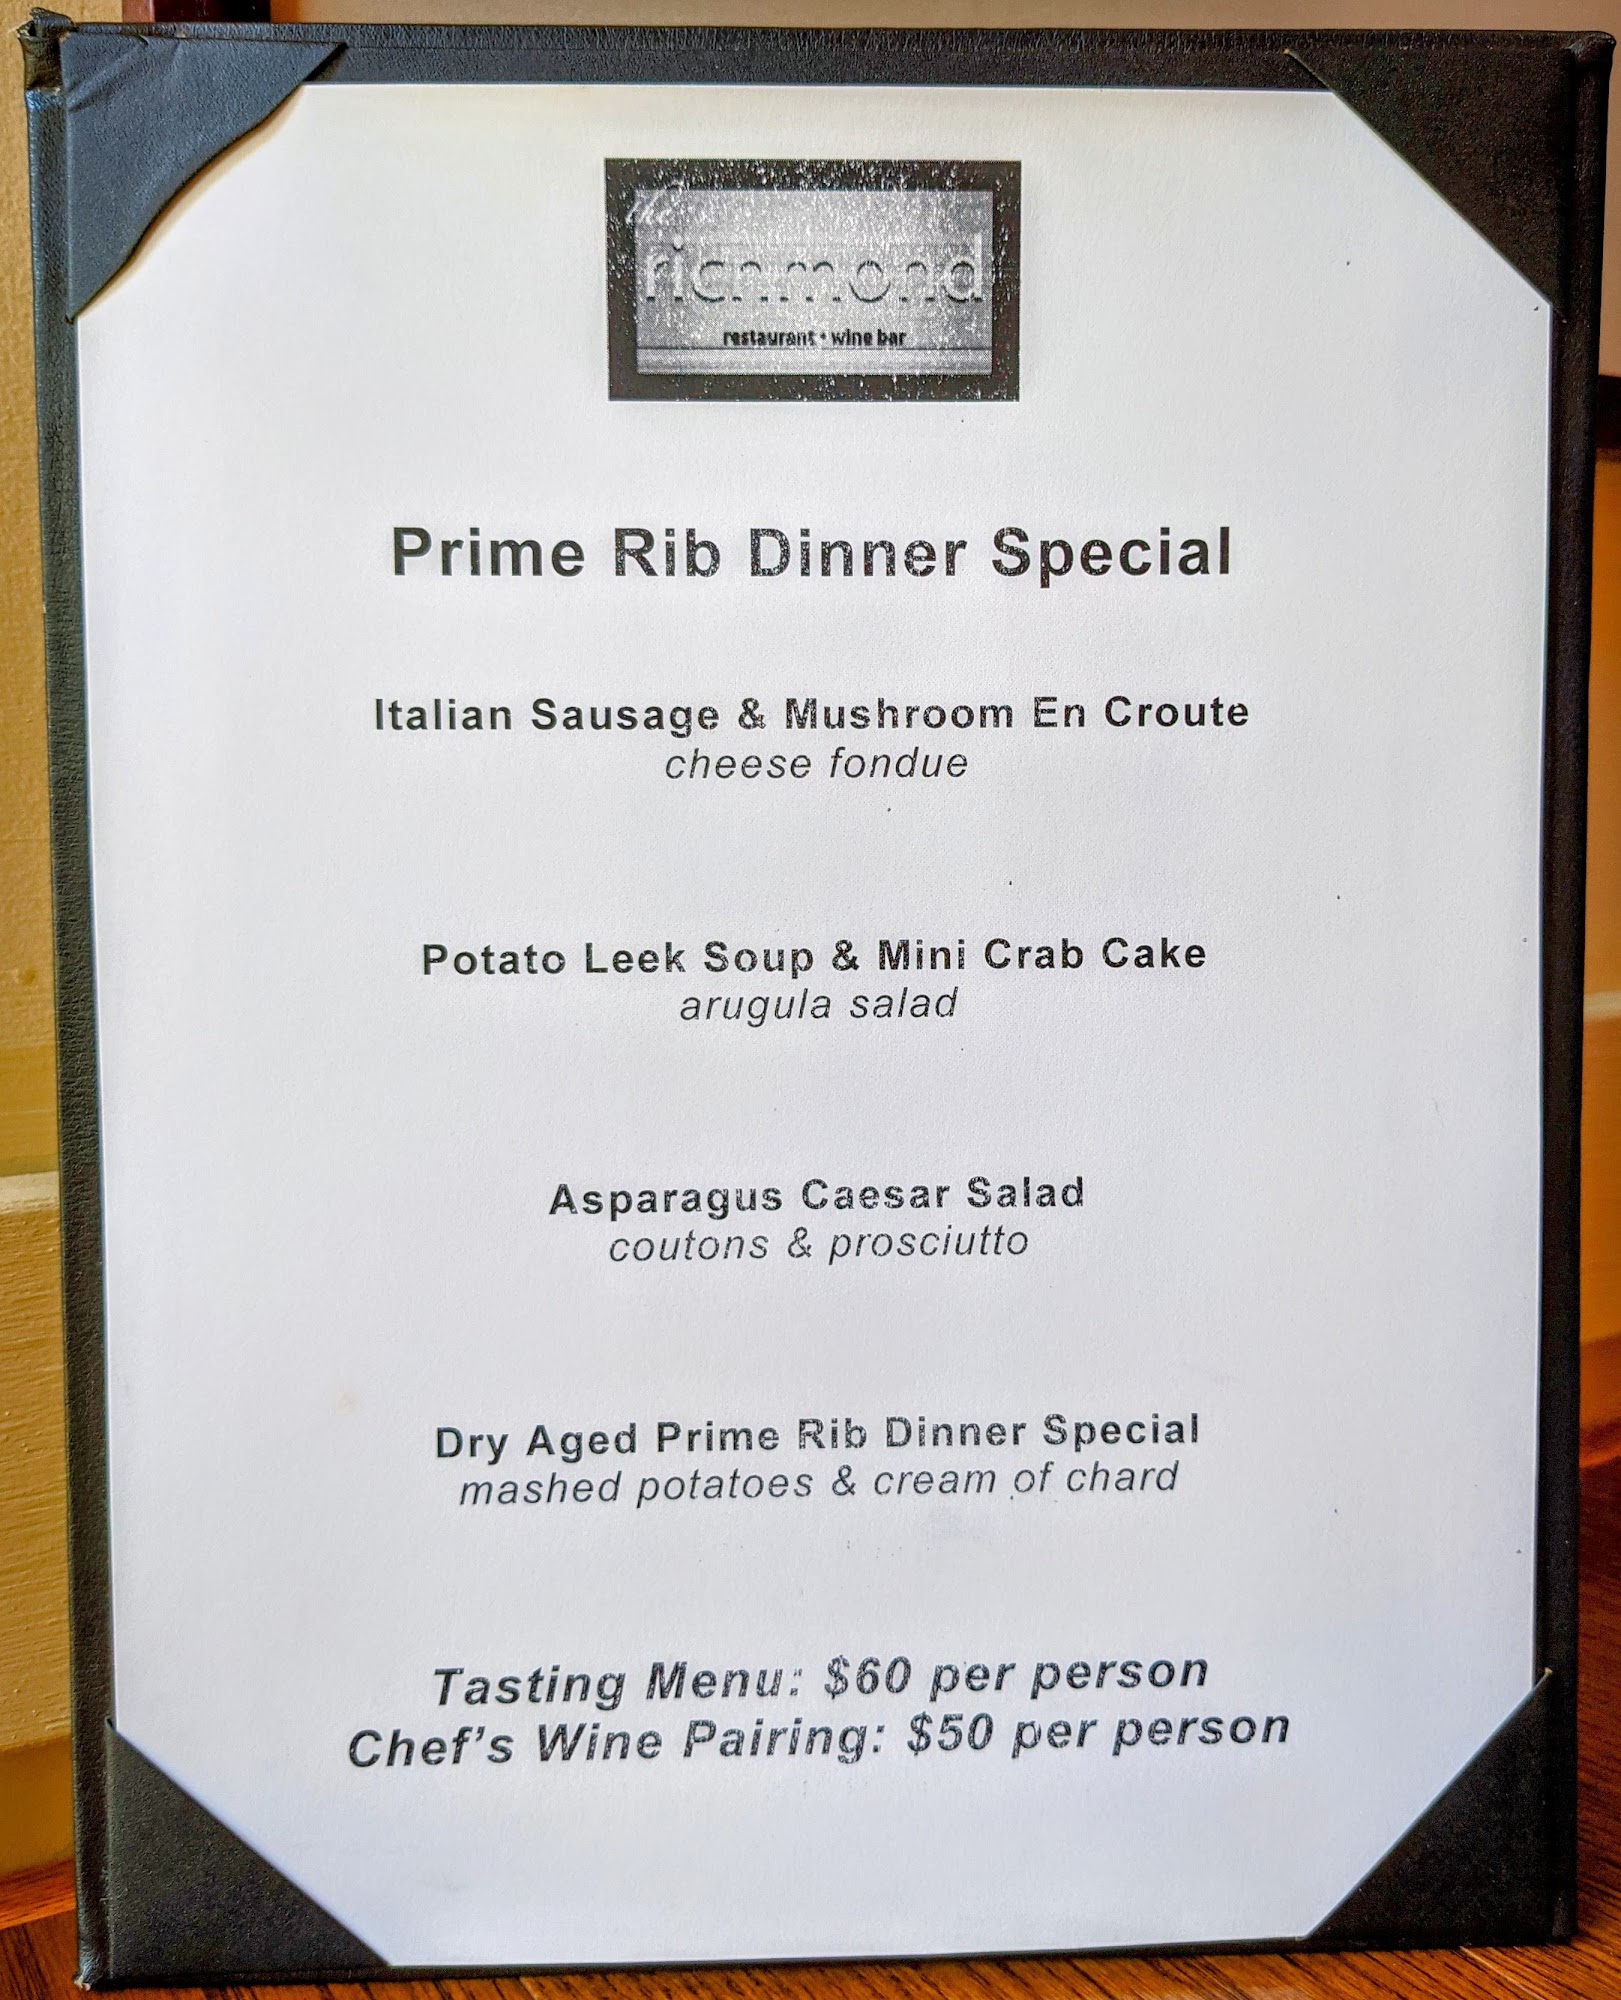 the
richmond
restaurant • wine bar
Prime Rib Dinner Special
Italian Sausage & Mushroom En Croute
cheese fondue
Potato Leek Soup & Mini Crab Cake
arugula salad
Asparagus Caesar Salad
coutons & prosciutto
Dry Aged Prime Rib Dinner Special
mashed potatoes & cream of chard
Tasting Menu: $60 per person
Chef's Wine Pairing: $50 per person